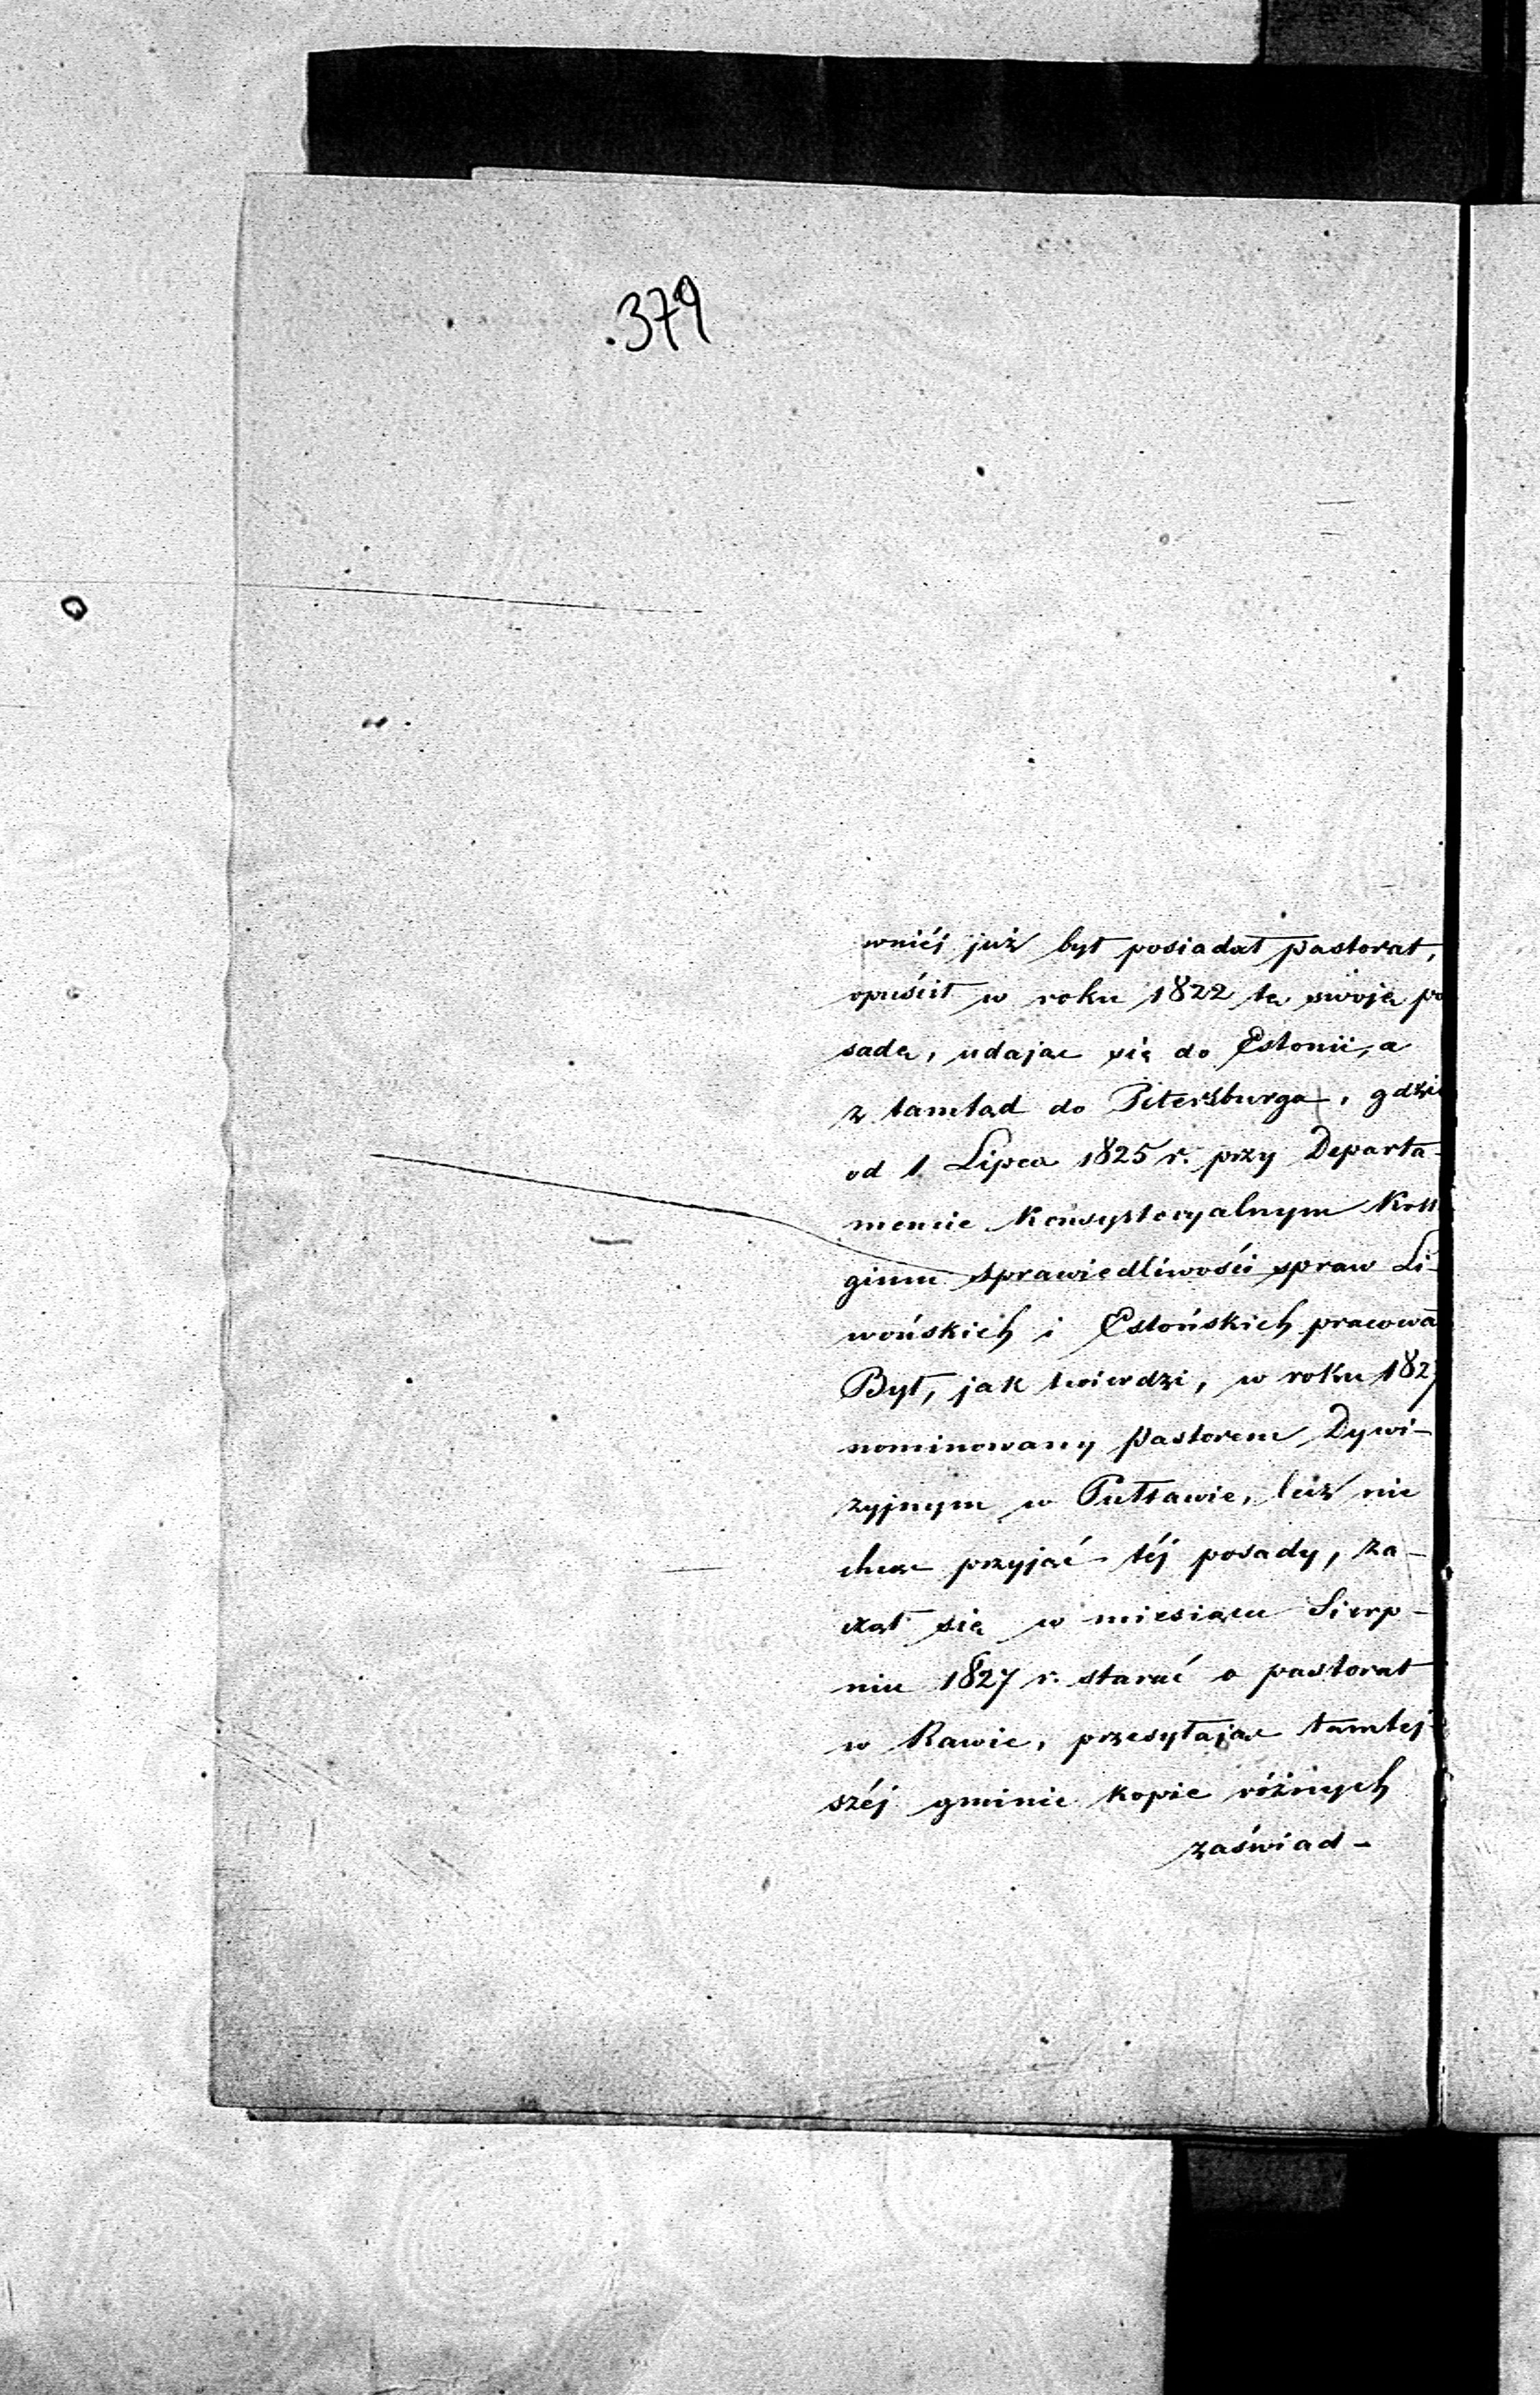 .379
wniéj już był posiadał pastorat,
opuścił w roku 1822 tę swoją po
sadę, udając się do Estonii, a
z tamtąd do Petersburga, gdzie
od 1 Lipca 1825 r. przy Departa-
mencie Konsystoryalnym Kolle
gium Sprawiedliwości spraw Li-
wońskich i Estońskich pracował
Był, jak twierdzi, w roku 1827
nominowany Pastorem Dywi-
zyjnym w Pułtawie, lecz nie
chcąc przyjąć téj posady, za-
czął się w miesiącu Sierp-
niu 1827 r. starać o pastorat
w Rawie, przesyłając tamtej-
széj gminie kopie różnych
zaświad-